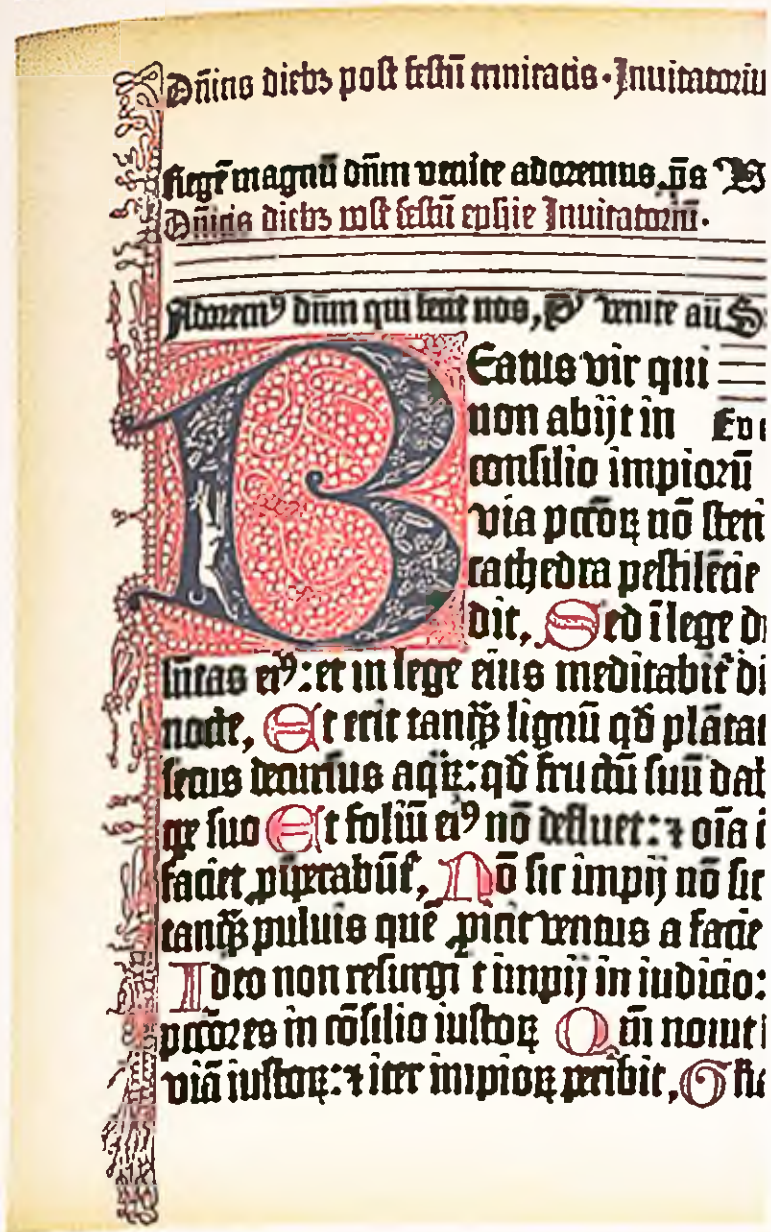 Dñicis diebꝫ post festũ trinitatis. Inuitatoriũ
Regẽ magnũ dñm venite adoremus, p̄s V
Dñicis diebꝫ post festũ ephie Inuitatoriũ.
Adoremꝰ dñm qui fecit nos, P̄ venite añ S
BEatus vir qui
non abijt in Eu
consilio impiorũ
via pctõꝝ nõ steti
cathedra pestilẽcie
dit, Sed ĩ lege d
lũtas eiꝰ: et in lege eius meditabit᷑ di
nocte, Et erit tanꝙ̃ lignũ qd̃ plãtat
secus decursus aqꝝ: qd̃ fructũ suũ dab
ꝑe suo Et foliũ eiꝰ nõ defluet: ⁊ oĩa
faciet ꝓsꝑabũt᷑, Nõ sic impij nõ sic
tanꝙ̃ puluis quẽ ꝓicit ventus a facie
Ideo non resurgũt impij in iudicio:
pctõres in cõsilio iustoꝝ Qm̃ nouit
viã iustoꝝ: ⁊ iter impioꝝ peribit,